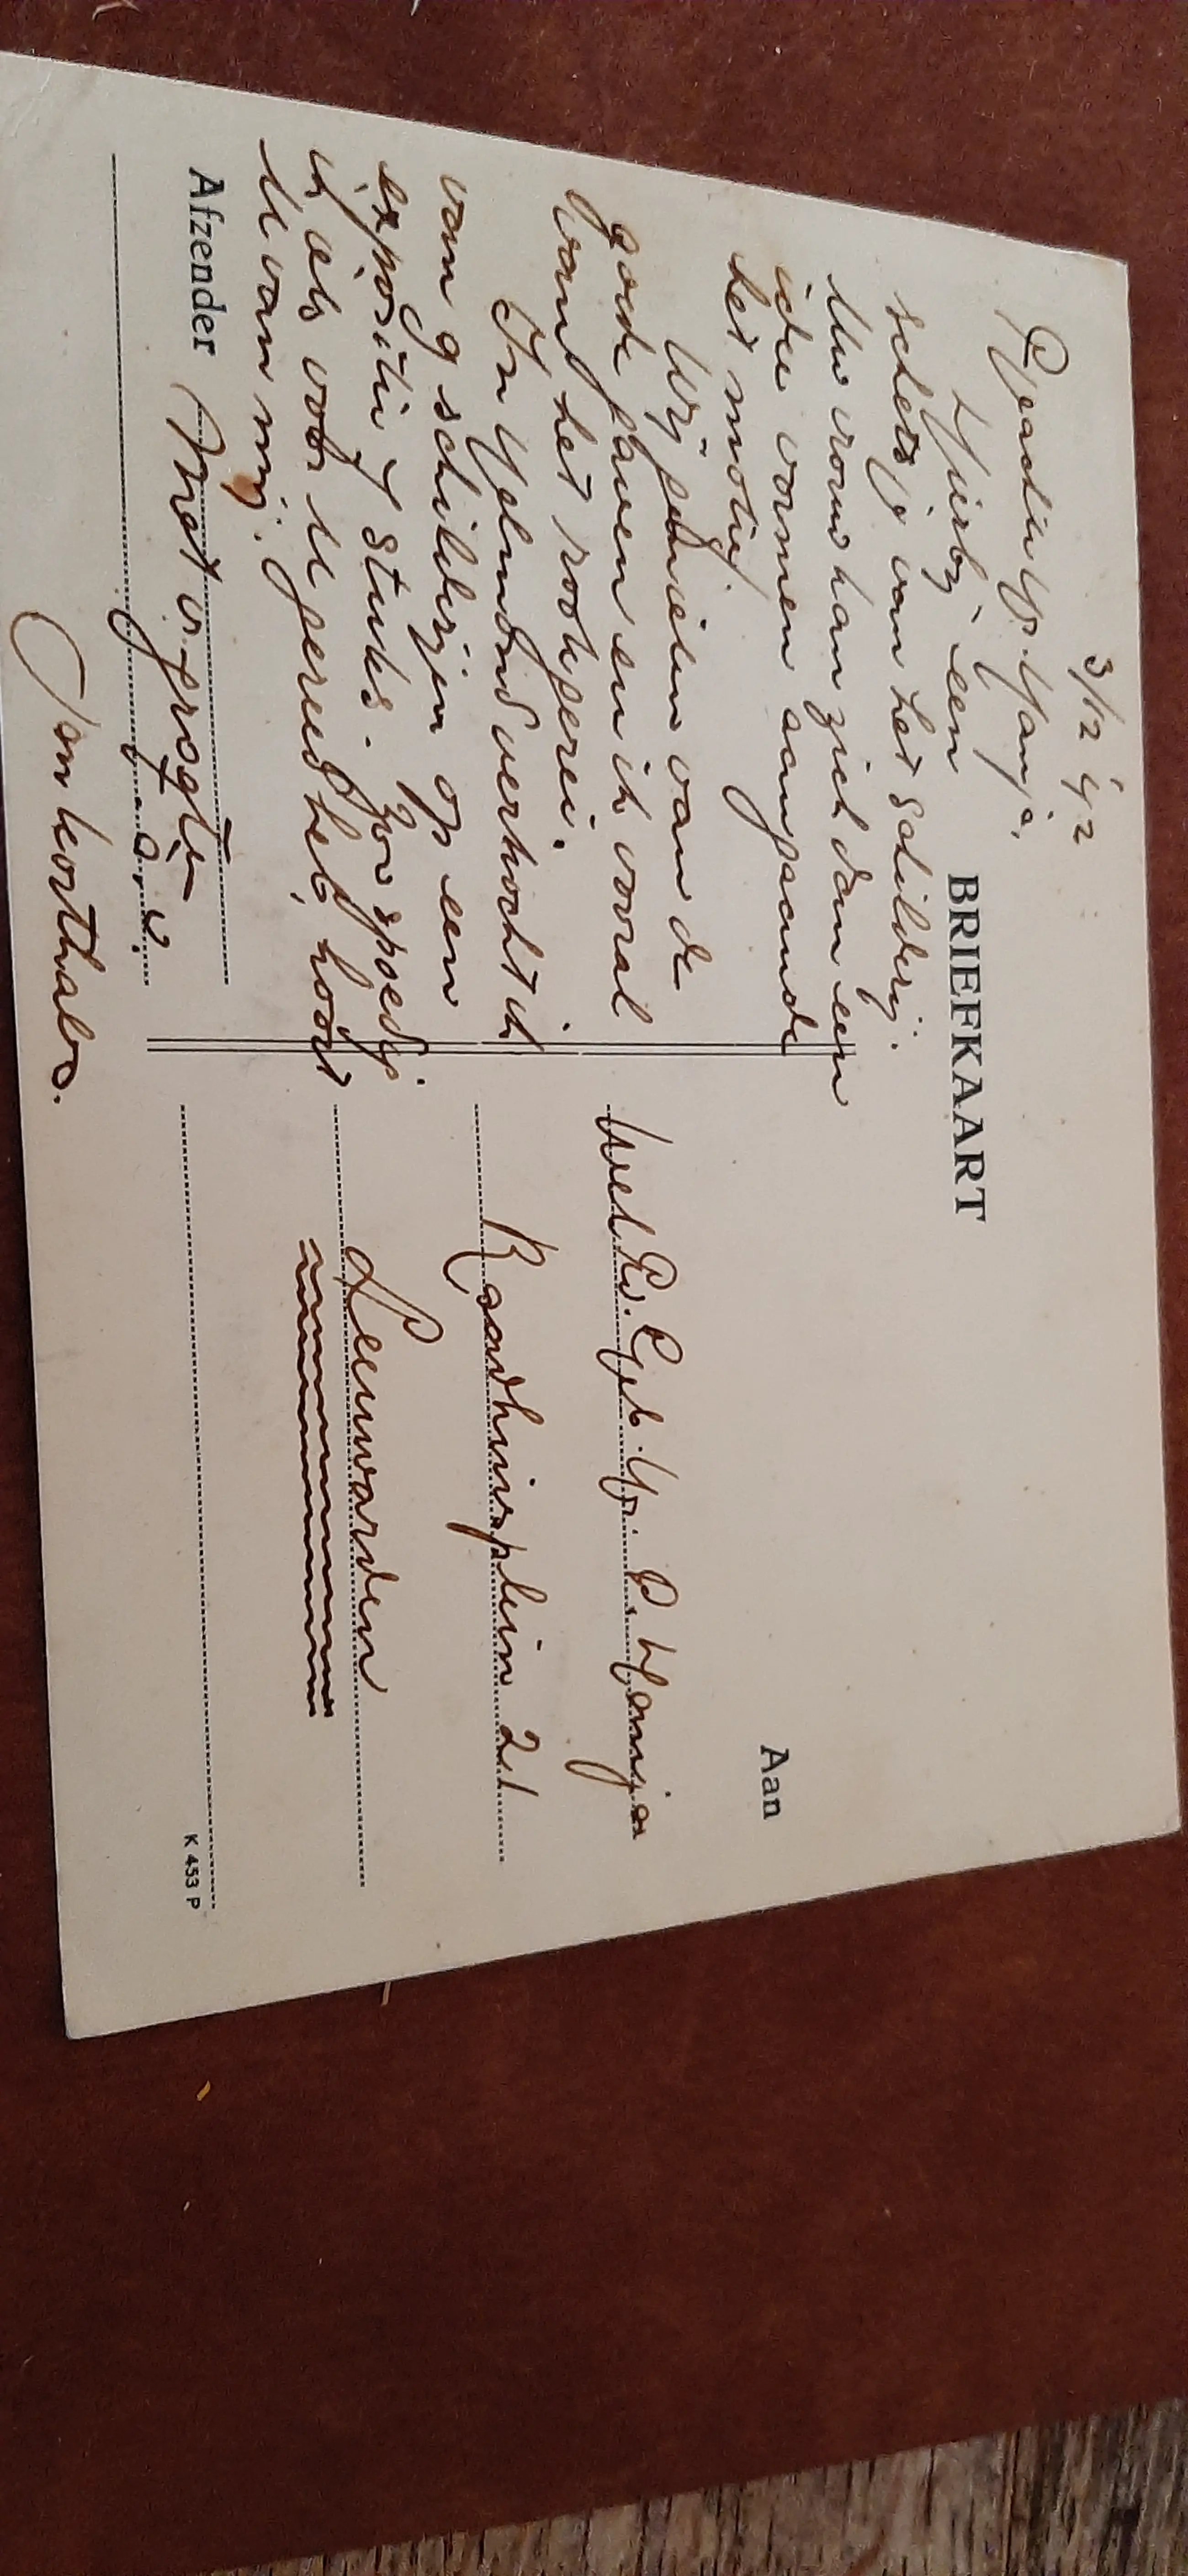 3/12 '42
BRIEFKAART
Geachte Hr. Hanja,
Hierbij een
schetsje van het schilderij.
Uw vrouw kan zich dan een
idee vormen aangaande
het motief.
Wij genieten van de
goede gaven en ik vooral
van het rookgerei.
In Helmond verkocht ik
van 9 schilderijen op een
expositie 7 stuks. Zoo spoedig
ik iets voor U gereed heb, hoort
U van mij.
Afzender Met vr. groeten
a. u.
Jan Korthals.
Aan
Wel Ed. Geb. Hr. P. Hanja
Raadhuisplein 21
Leeuwarden
K 453 P